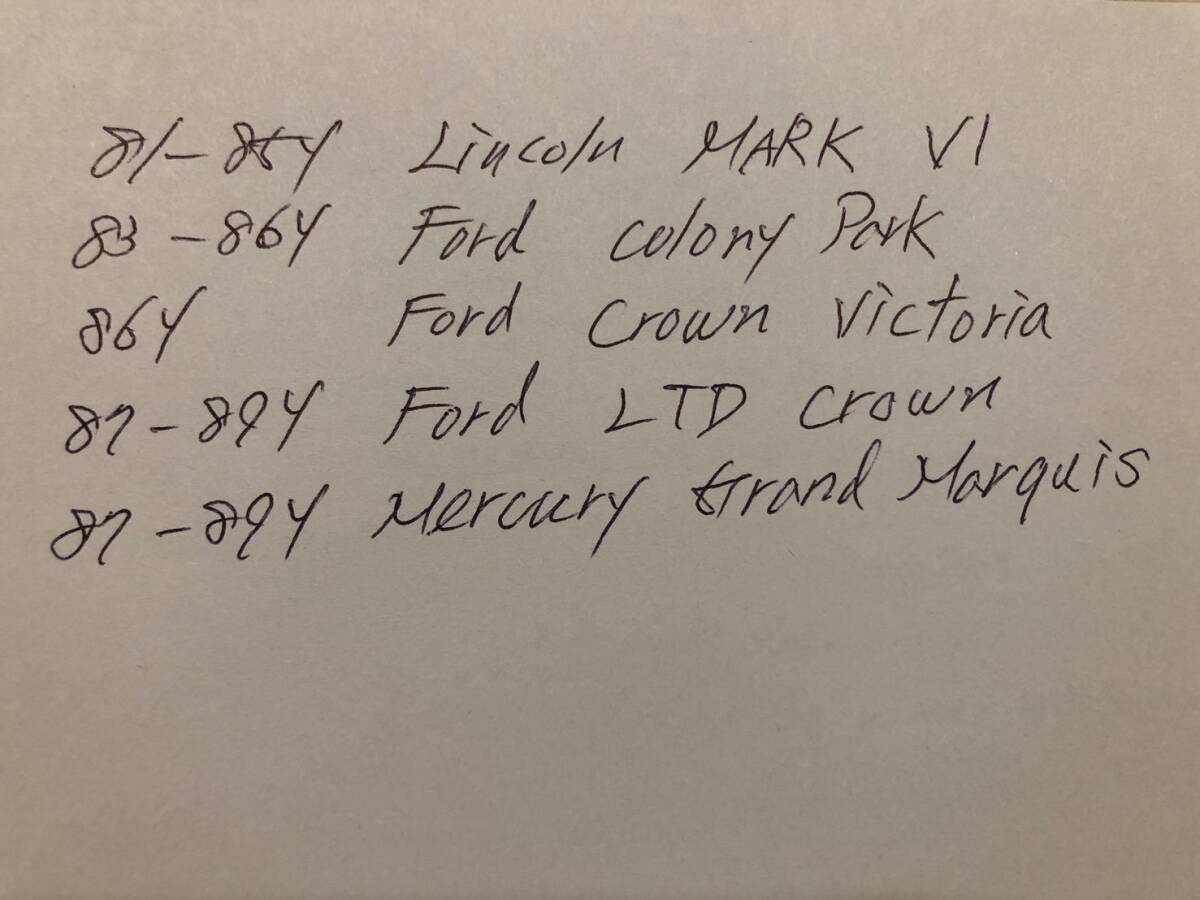 81-85Y Lincoln MARK VI
83-86Y Ford colony Park
86Y Ford Crown Victoria
87-89Y Ford LTD Crown
87-89Y Mercury Grand Marquis